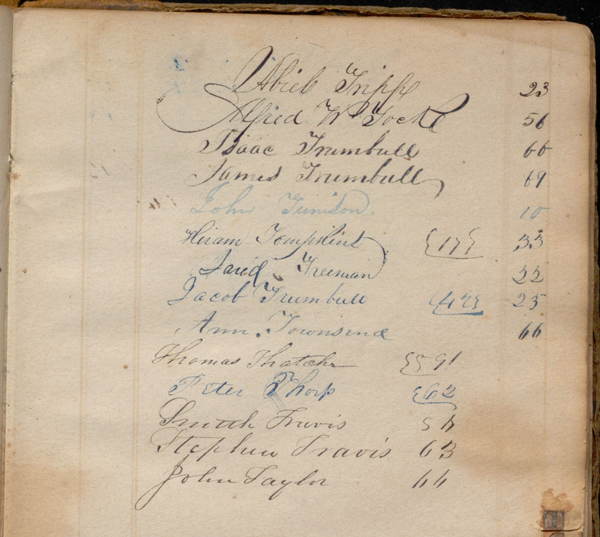 Abieb Tripp 23
Alfred W Tocke 56
Isaac Trumbull 60
James Trumbull 69
John Tunison 10
Hiram {17} 33
David Freeman 22
Jacob Trumbull 25
Ann Townsend 66
Thomas Thatcher
Peter Thorp {62
Smith Travis
Stephen Travis 63
John Taylor 66